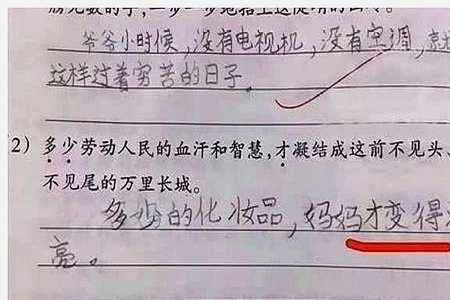 爷爷小时候,没有电视机,没有空调,就
这样过着穷苦的日子。
2) 多少劳动人民的血汗和智慧,才凝结成这前不见头、
不见尾的万里长城。
多少的化妆品,妈妈才变得
亮。